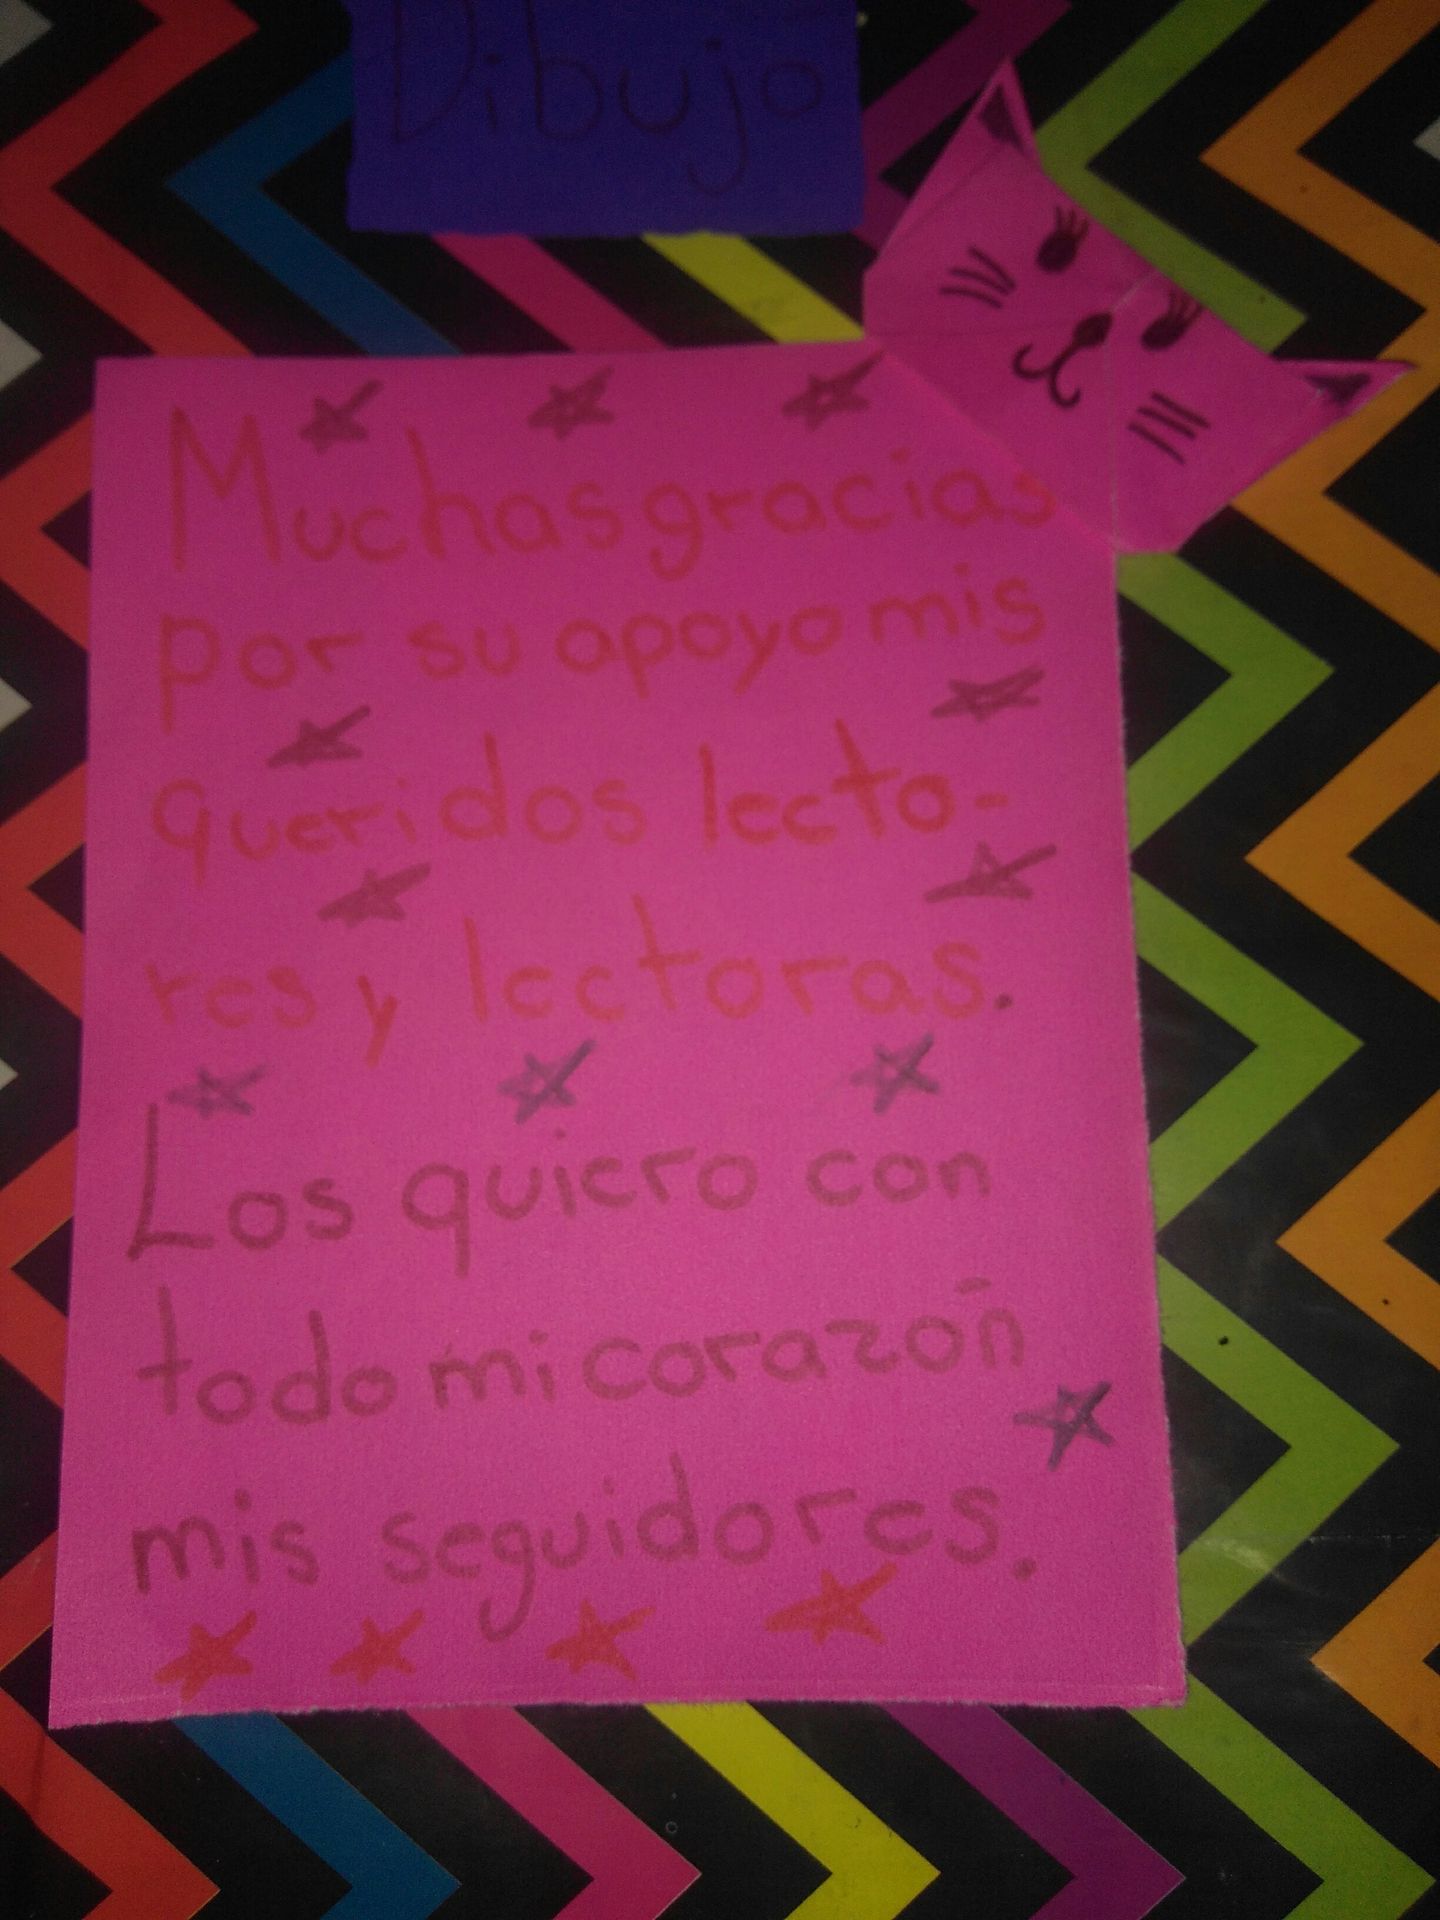 Dibujo
Muchas gracias
por su apoyo mis
queridos lecto-
res y lectoras.
Los quiero con
todo mi corazón
mis seguidores.